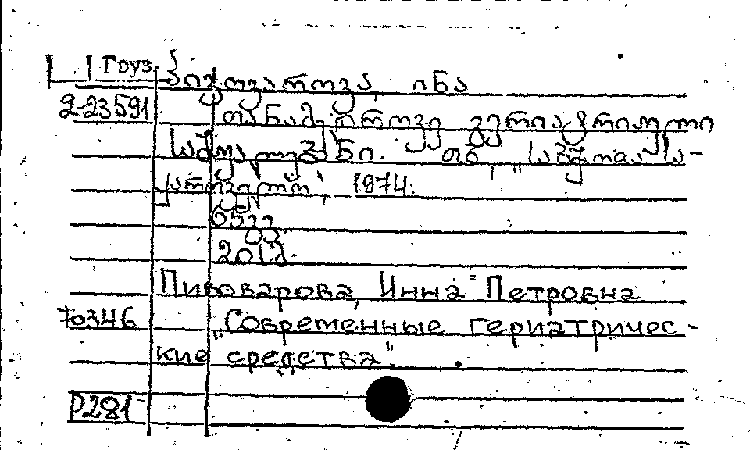 Груз.
პივოვაროვა, ინა
2-23591
თანამედროვე გერიატრიული
საშუალებანი. თბ., „საბჭოთა სა-
ქართველო", 1974.
20სმ.
Пивоварова, Инна Петровна
70346 „Современные гериатричес-
кие средства".
Р281